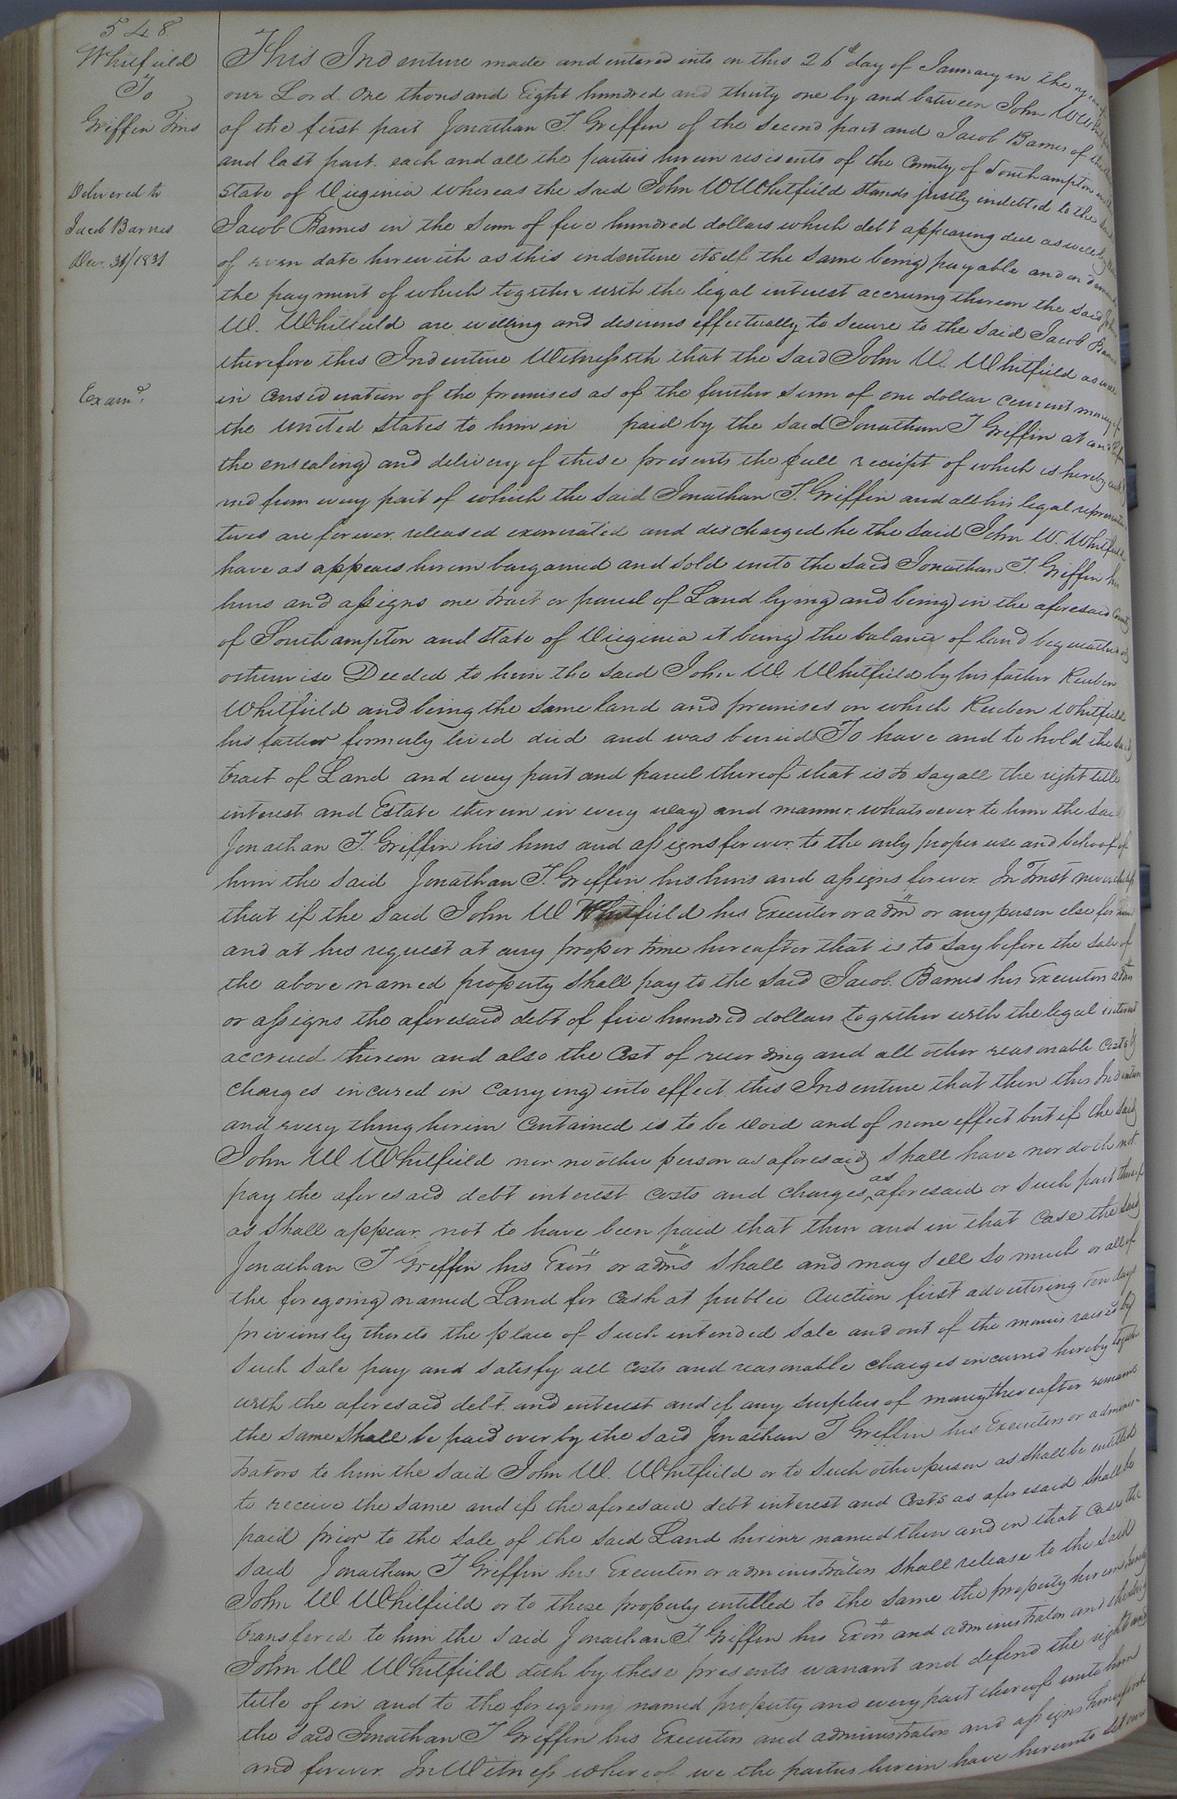 548
Whitfield
To
Griffin Trus
Delivered to
Jacob Barnes
Dec. 31/1831
Examd.
This Indenture made and entered into on this 26th day of January in the year of
our Lord One thousand Eight hundred and thirty one by and between John W Whitfield
of the first part Jonathan T. Griffin of the second part and Jacob Barnes of the third
and last part. each and all the parties herein residents of the County of Southampton and
State of Virginia whereas the said John W Whitfield stands justly indebted to the said
Jacob Barnes in the sum of five hundred dollars which debt appearing due as well by
of even date herewith as this indenture itself the same being payable and on demand
the payment of which together with the legal interest accruing thereon the said John
W. Whitfield are willing and desirous effectually to secure to the said Jacob Barnes
therefore this Indenture Witnesseth that the said John W. Whitfield as well
in consideration of the premises as of the further sum of one dollar current money of
the United States to him in paid by the said Jonathan T Griffin at and before
the ensealing and delivery of these presents the full receipt of which is hereby
and from every part of which the said Jonathan T. Griffin and all his legal representa
tives are forever released exonerated and discharged he the said John W. Whitfield
have as appears herein bargained and sold unto the said Jonathan T. Griffin his
heirs and assigns one tract or parcel of Land lying and being in the aforesaid County
of Southampton and State of Virginia it being the balance of land bequeathed or
otherwise Deeded to him the said John W. Whitfield by his father Reuben
Whitfield and being the same land and premises on which Reuben Whitfield
his father formerly lived died and was buried To have and to hold the said
tract of Land and every part and parcel thereof that is to say all the right title
interest and Estate therein in every way and manner whatsoever to him the said
Jonathan T. Griffin his heirs and assigns forever to the only proper use and behoof of
him the said Jonathan T. Griffin his heirs and assigns forever. In Trust nevertheless
that if the said John W Whitfield his Executor or admr or any person else for him
and at his request at any proper time hereafter that is to say before the sale of
the above named property shall pay to the said Jacob Barnes his Executors admrs
or assigns the aforesaid debt of five hundred dollars together with the legal interest
accrued thereon and also the Cost of recording and all other reasonable Costs &
charges incured in carrying into effect this Indenture that then this Indenture
and every thing herein Contained is to be void and of none effect but if the said
John W Whitfield nor no other person as aforesaid shall have nor doth not
pay the aforesaid debt interest costs and charges as aforesaid or such part thereof
as shall appear not to have been paid that then and in that case the said
Jonathan T Griffin his Exors or adms shall and may sell so much or all of
the foregoing named Land for cash at public Auction first advertising ten days
previously thereto the place of such intended sale and out of the monies raised by
such sale pay and satisfy all costs and reasonable charges incurred hereby together
with the aforesaid debt and interest and if any surplus of money thereafter remains
the same shall be paid over by the said Jonathan T Griffin his Executors or adminis-
trators to him the said John W. Whitfield or to such other person as shall be entitled
to receive the same and if the aforesaid debt interest and Costs as aforesaid shall be
paid prior to the sale of the said Land herein named then and in that case the
said Jonathan T Griffin his Executors or administrators shall release to the said
John W Whitfield or to those properly entitled to the same the property herein
transfered to him the said Jonathan T Griffin his Exors and administrators and the said
John W Whitfield doth by these presents warrant and defend the right and
title of in and to the foregoing named property and every part thereof unto him
the said Jonathan T Griffin his Executors and administrators and assigns henceforth
and forever. In Witness whereof we the parties herein have hereunto set our